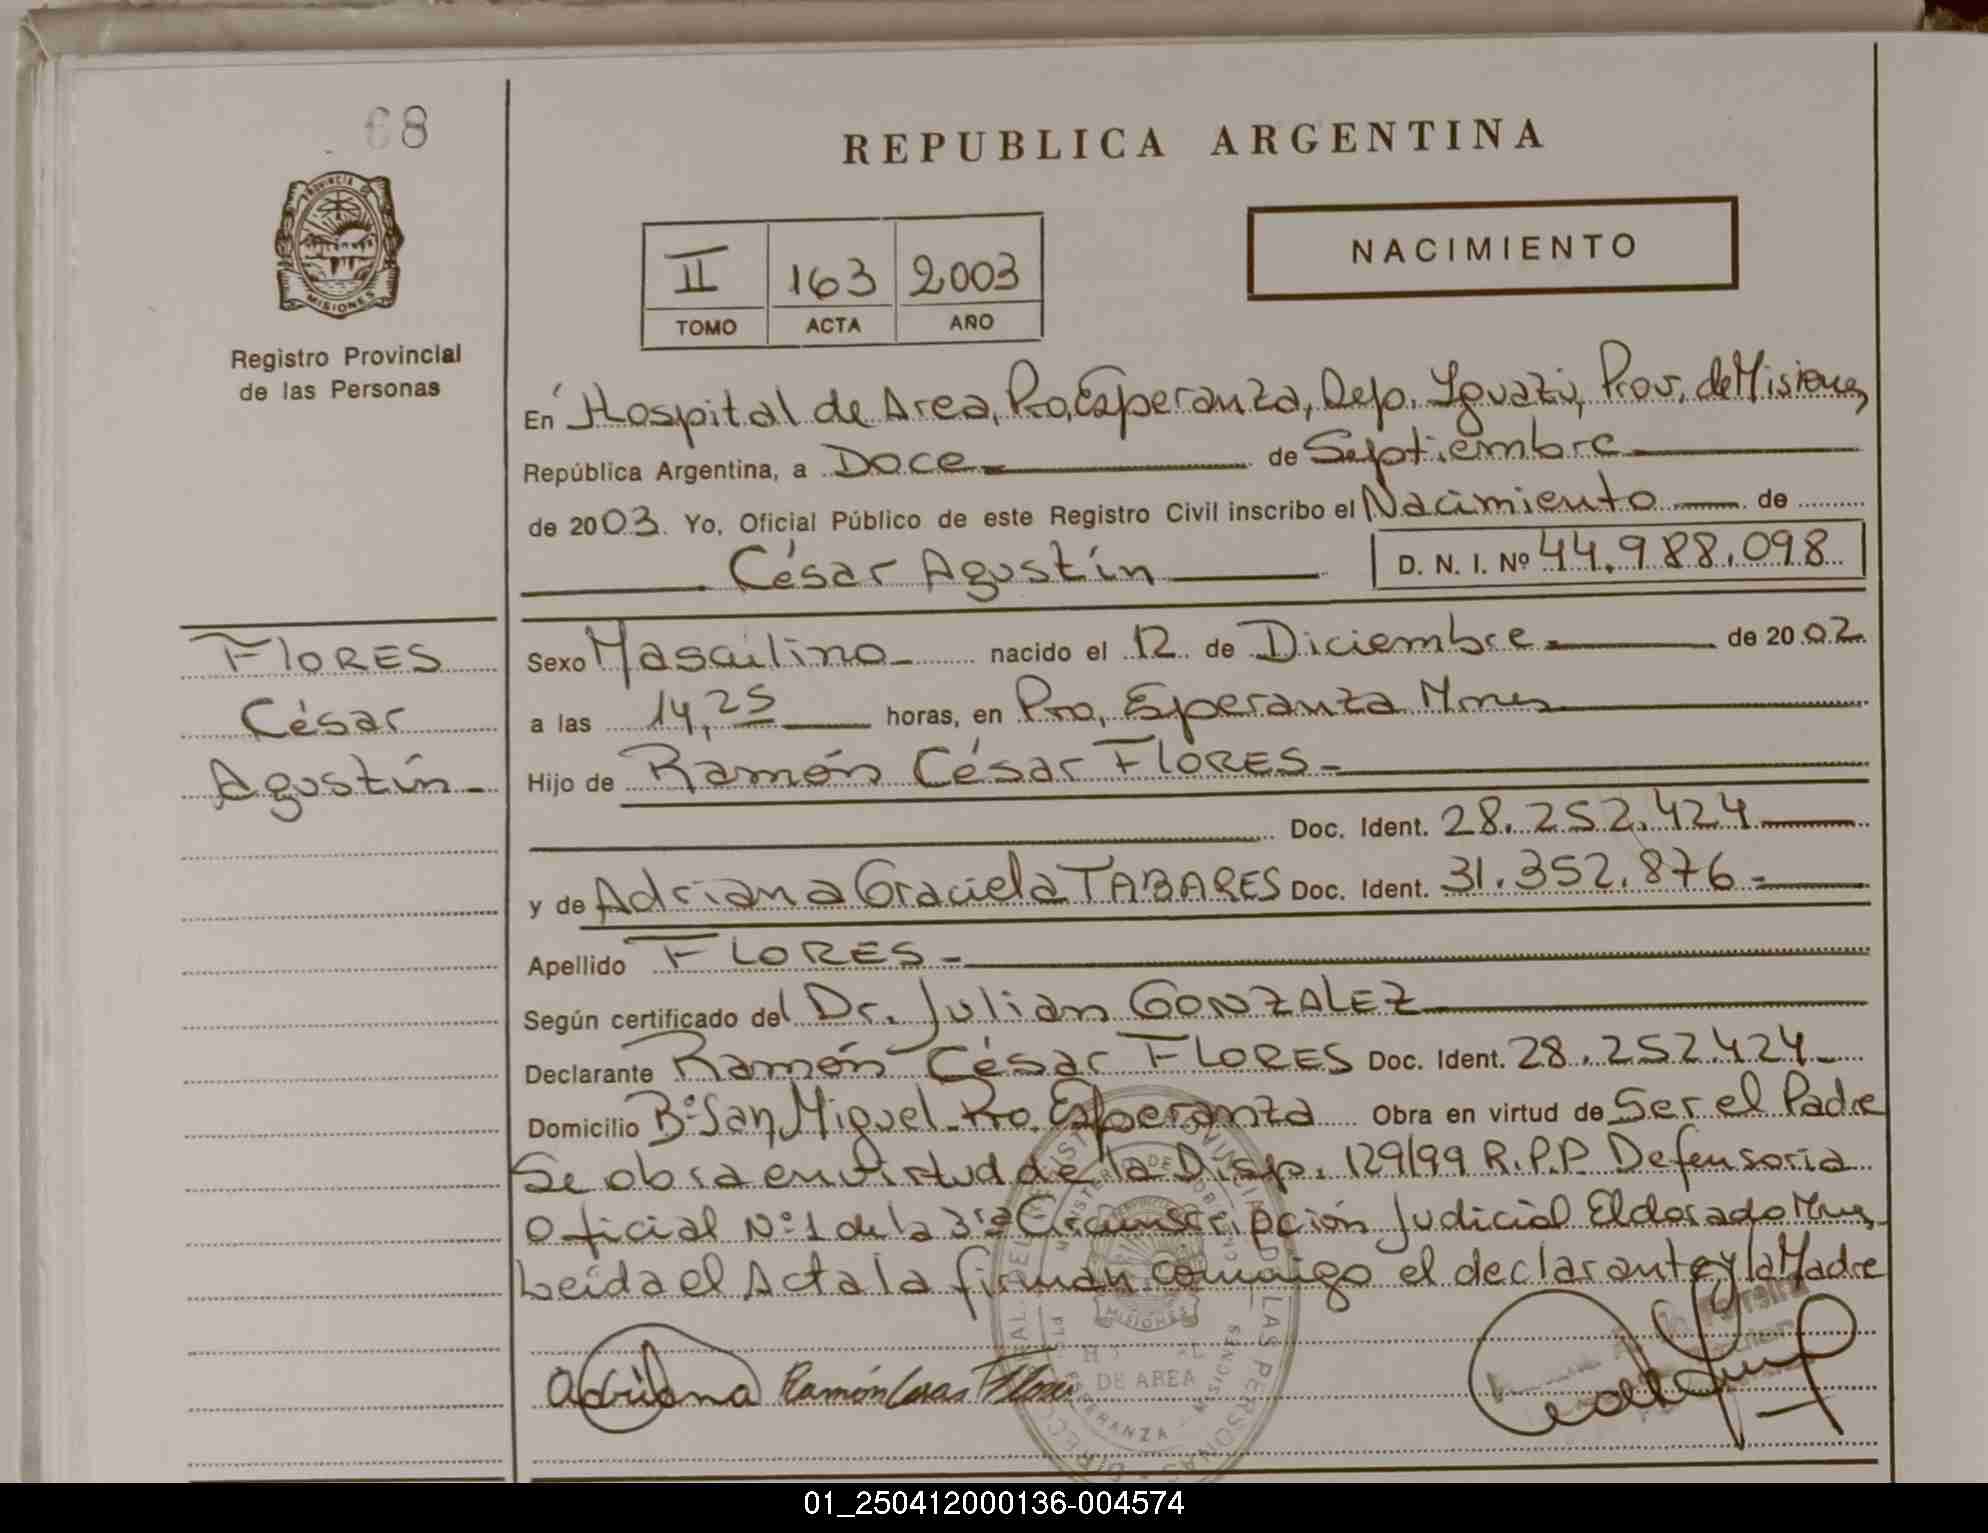 68
REPUBLICA ARGENTINA
PROVINCIA DE
MISIONES
NACIMIENTO
II 163 2003
TOMO ACTA AÑO
Registro Provincial
de las Personas
En Hospital de Area, Pto, Esperanza, Dep. Iguazú, Prov. de Misiones,
República Argentina, a Doce de Septiembre
de 2003. Yo, Oficial Público de este Registro Civil inscribo el Nacimiento de
César Agustín D. N. I. Nº 44.988.098
FLORES
César
Agustín
Sexo Masculino nacido el 12 de Diciembre de 2002
a las 14,25 horas, en Pto, Esperanza Mnes
Hijo de Ramón César FLORES
Doc. Ident. 28.252.424
y de Adriana Graciela TABARES Doc. Ident. 31.352.876
Apellido FLORES
Según certificado del Dr. Julian GONZALEZ
Declarante Ramón César FLORES Doc. Ident. 28.252.424
Domicilio Bº San Miguel Pto. Esperanza Obra en virtud de Ser el Padre
Se obra en virtud de la Disp. 129/99 R.P.P. Defensoria
Oficial Nº 1 de la 3ra Circunscripción Judicial Eldorado Mnes
Leida el Acta la firman conmigo el declarante y la Madre
Adriana Ramón Flores
DE AREA
ESPERANZA - MISIONES
01_250412000136-004574